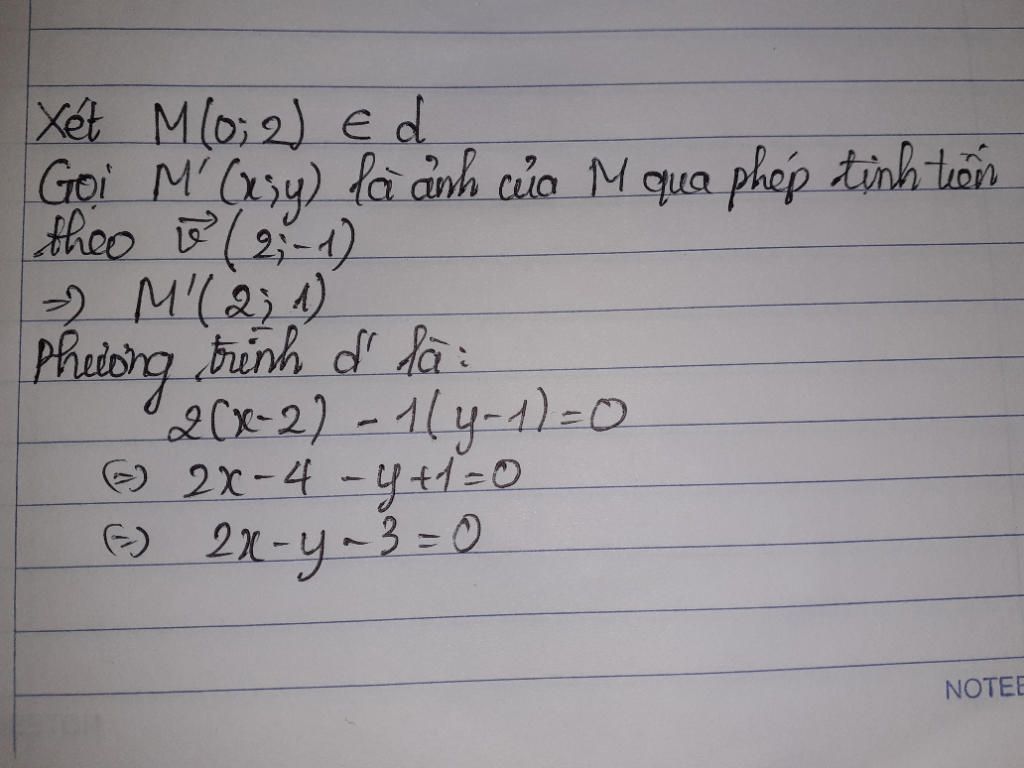 Xét M(0;2) ∈ d
Gọi M'(x;y) là ảnh của M qua phép tịnh tiến
theo v⃗(2;-1)
=> M'(2;1)
Phương trình d' là:
2(x-2) - 1(y-1)=0
(=) 2x-4 -y+1=0
(=) 2x-y-3=0
NOTEB